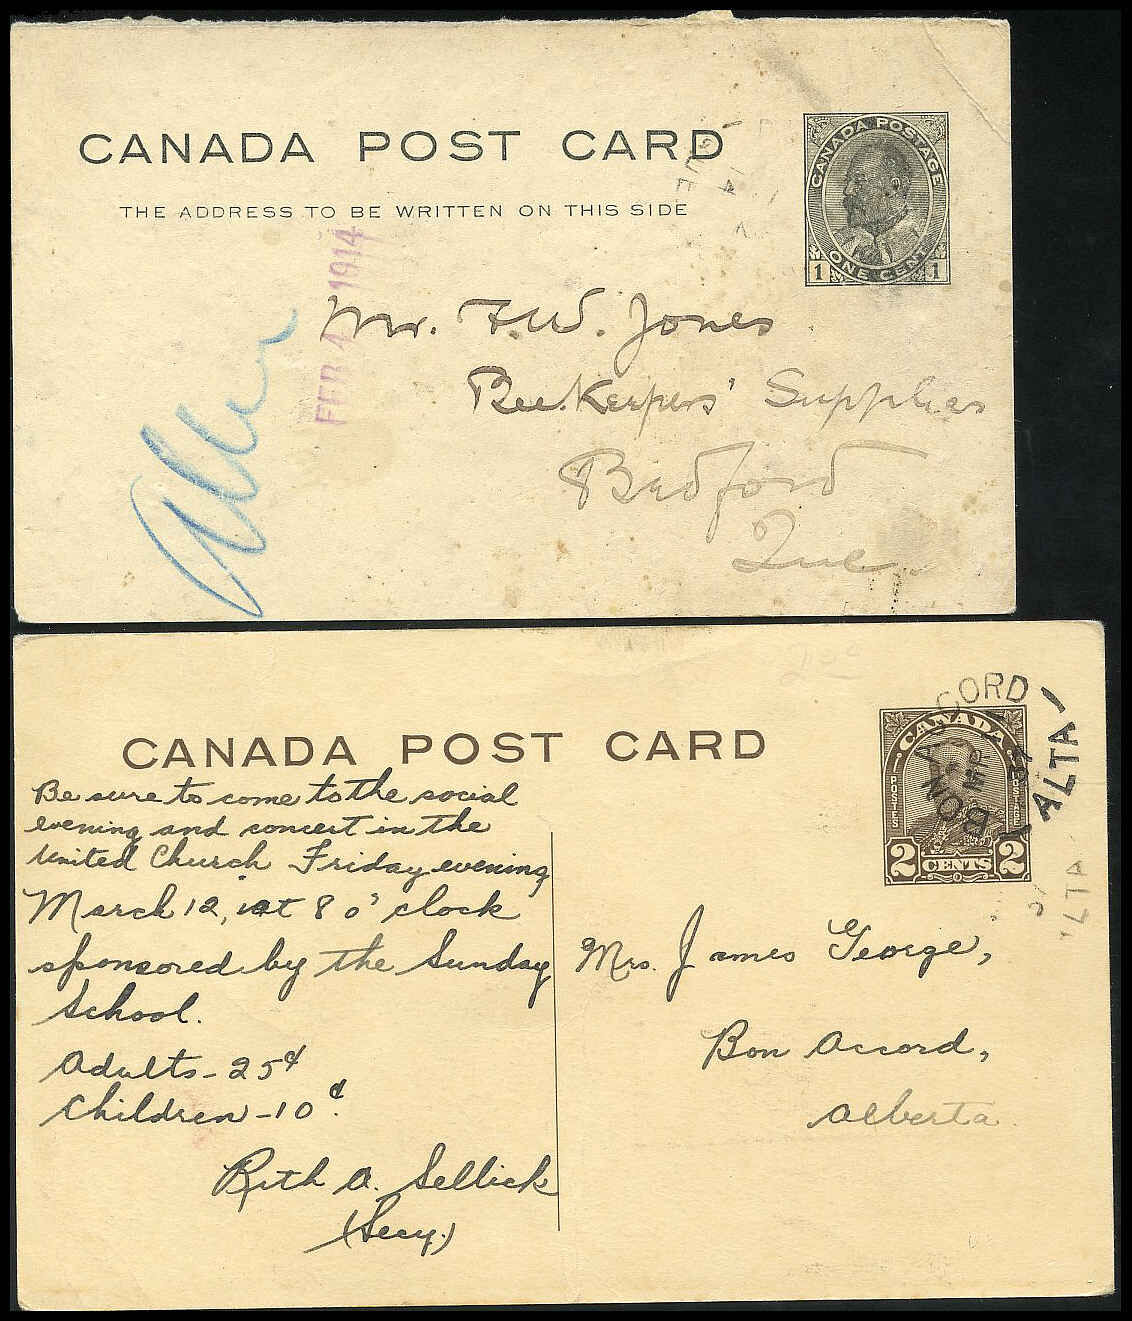 CANADA POST CARD
THE ADDRESS TO BE WRITTEN ON THIS SIDE
CANADA POSTAGE
1 ONE CENT 1
FEB 4 1914
Mr. F.W. Jones
BeeKeepers' Supplies
Bedford
Que.
CANADA POST CARD
CANADA
POSTES POSTAGE
2 CENTS 2
BON ACCORD
ALTA
37
Be sure to come to the social
evening and concert in the
United Church Friday evening
March 12, at 8 o'clock
sponsored by the Sunday
School.
Adults - 25¢
Children - 10¢.
Ruth A. Sellick
(Secy.)
Mrs. James George,
Bon Accord,
Alberta.